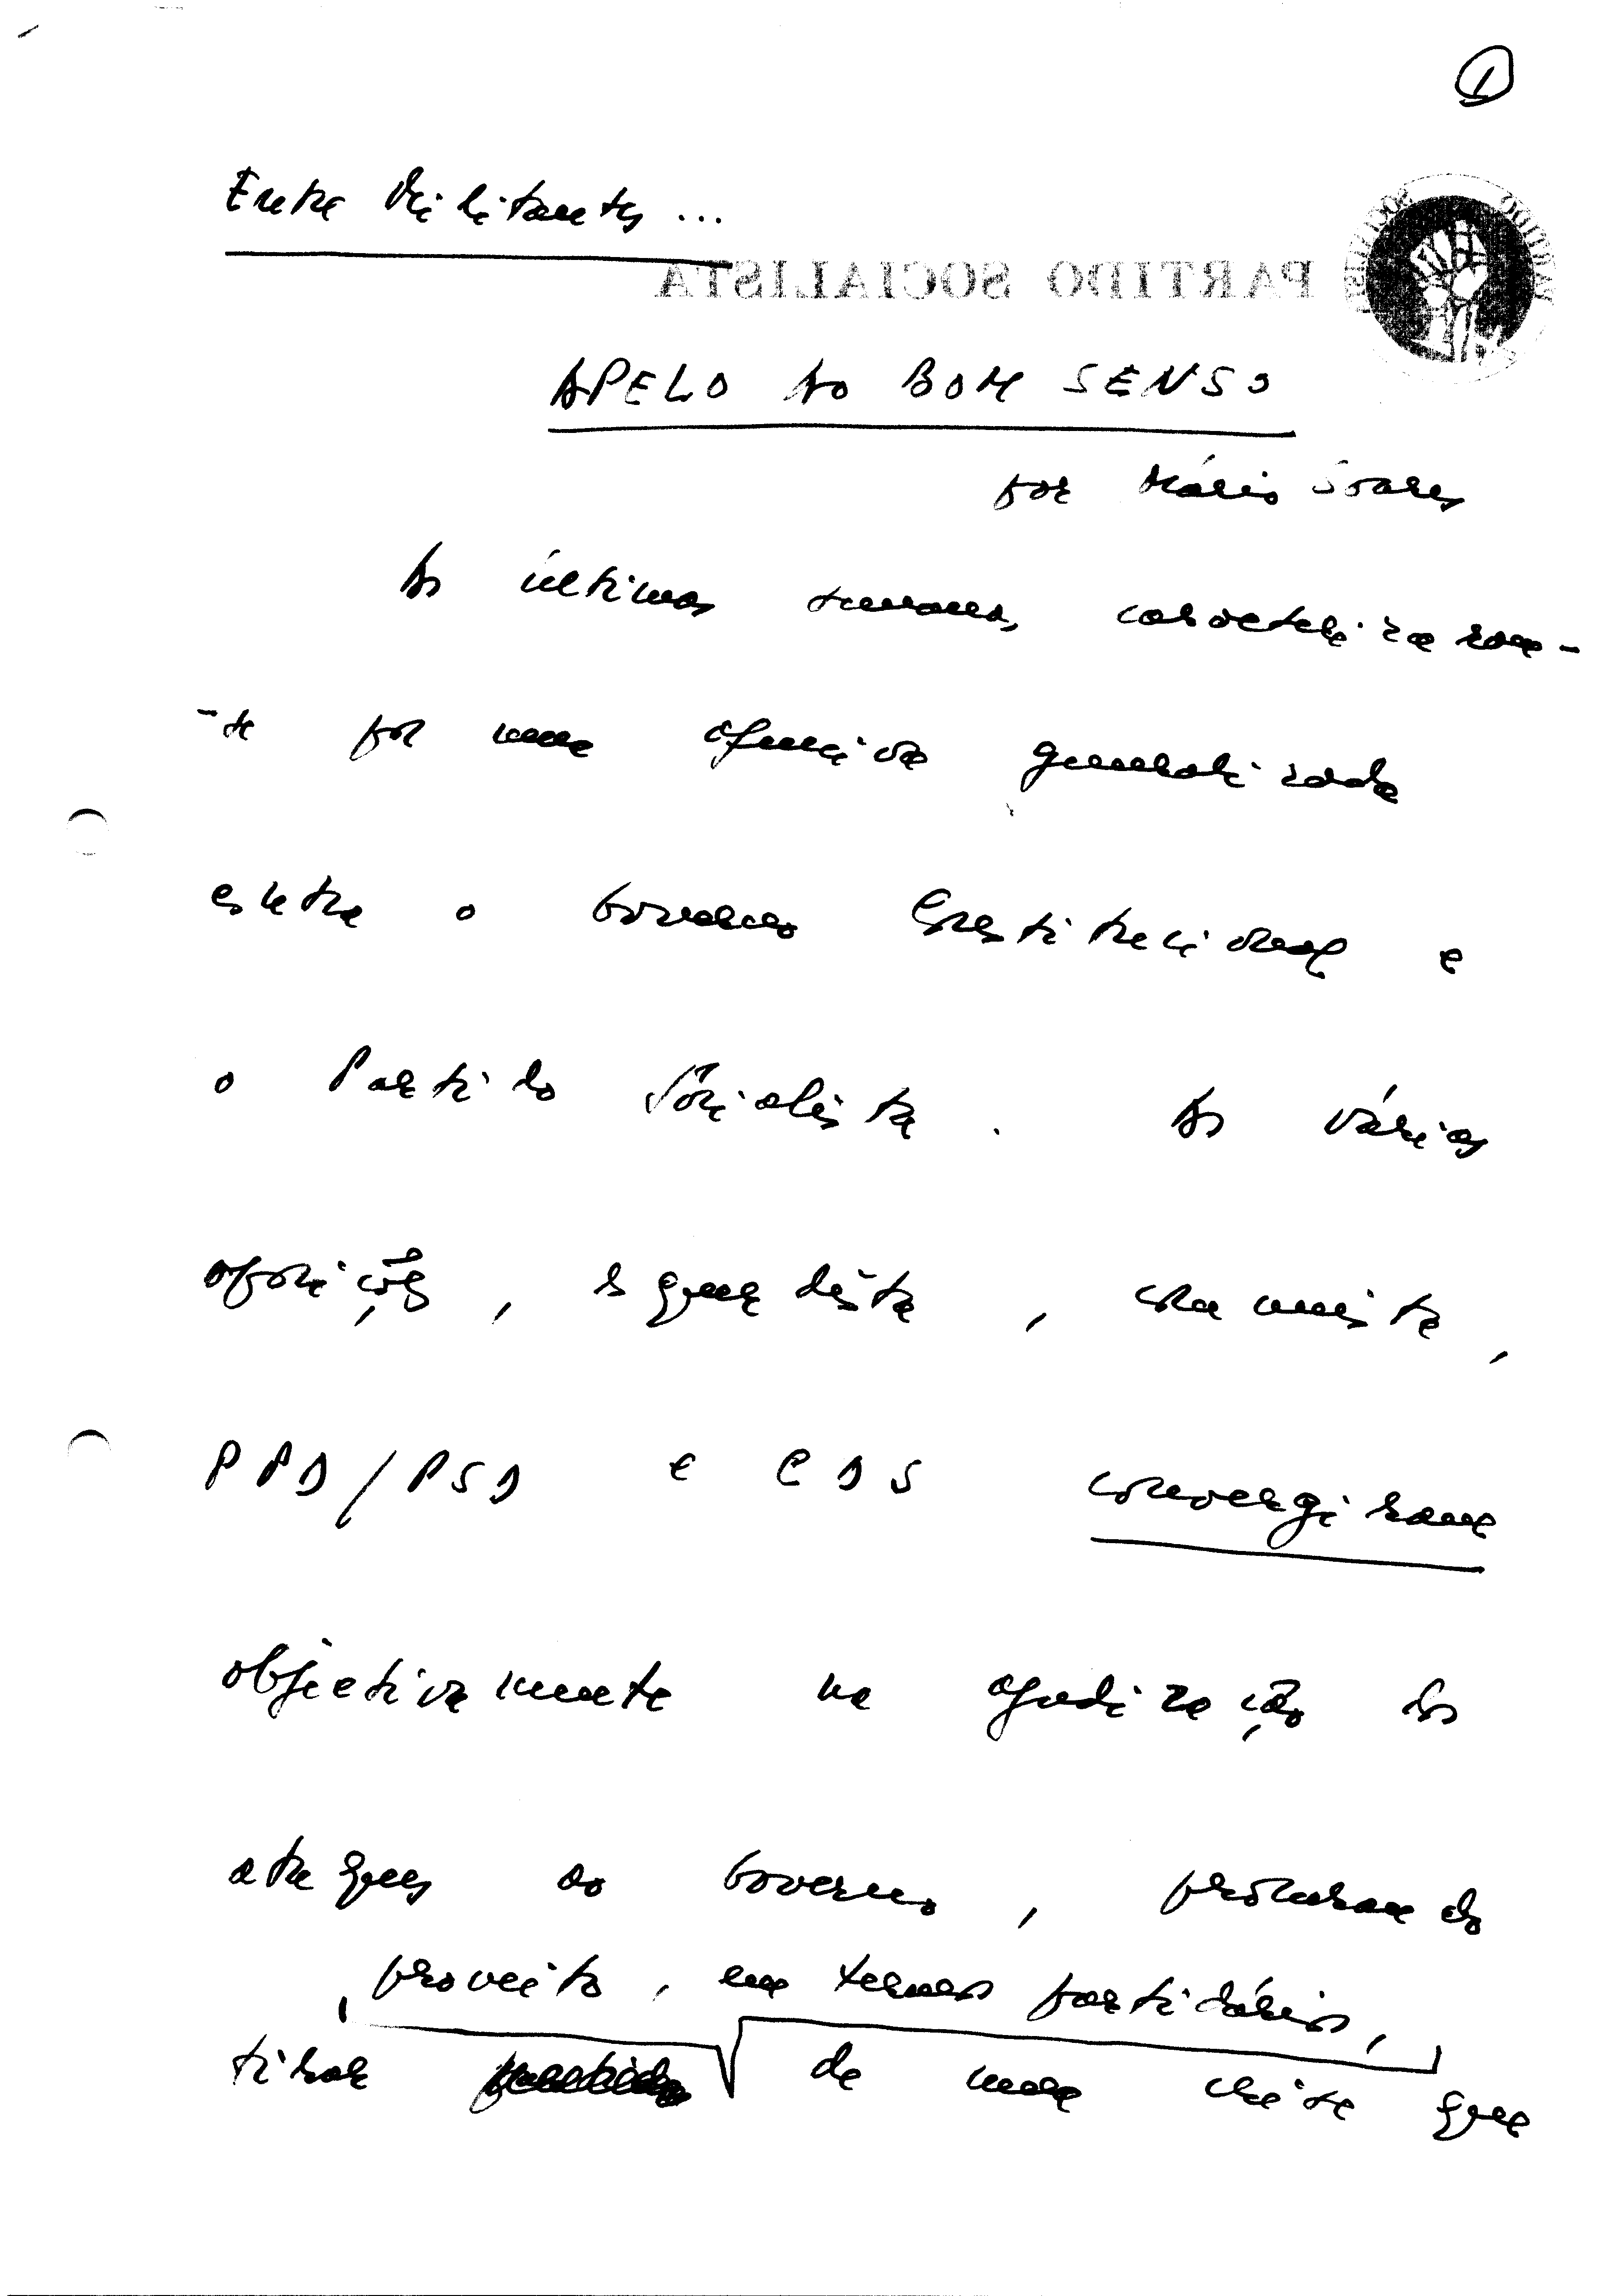 1
Entre Militantes ...
PARTIDO SOCIALISTA
APELO AO BOM SENSO
por Mário Soares
As últimas semanas, caracterizaram-
-se por uma ofensiva generalizada
contra o Governo Constitucional e
o Partido Socialista. As várias
oposições, esquerdista, comunista,
PPD/PSD e CDS convergiram
objectivamente na agudização dos
ataques ao Governo, procurando
proveito, em termos partidários,
tirar de uma crise que